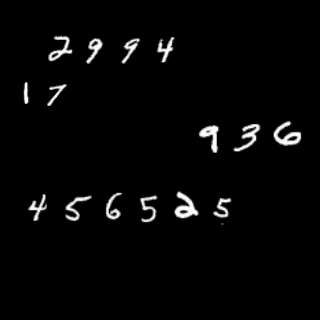 2994
17
936
456525